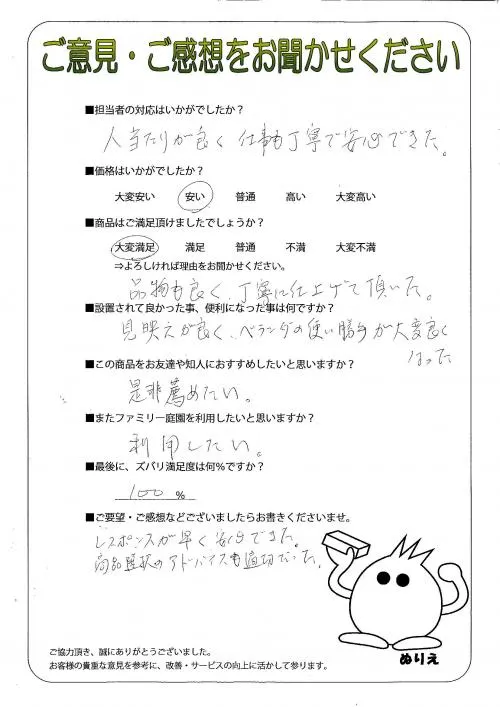 ご意見・ご感想をお聞かせください
■担当者の対応はいかがでしたか？
人当たりが良く 仕事も丁寧で安心できた。
■価格はいかがでしたか？
大変安い 安い 普通 高い 大変高い
■商品はご満足頂けましたでしょうか？
大変満足 満足 普通 不満 大変不満
⇒よろしければ理由をお聞かせください。
品物も良く、丁寧に仕上げて頂いた。
■設置されて良かった事、便利になった事は何ですか？
見映えが良く、ベランダの使い勝手が大変良く
なった
■この商品をお友達や知人におすすめしたいと思いますか？
是非薦めたい。
■またファミリー庭園を利用したいと思いますか？
利用したい。
■最後に、ズバリ満足度は何％ですか？
100 %
■ご要望・ご感想などございましたらお書きくださいませ。
レスポンスが早く安心できた。
商品選択のアドバイスも適切だった。
ぬりえ
ご協力頂き、誠にありがとうございました。
お客様の貴重な意見を参考に、改善・サービスの向上に活かして参ります。